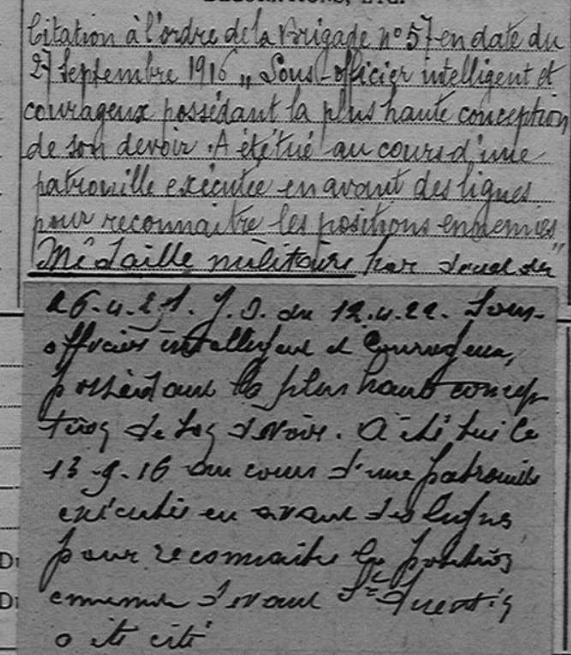 Citation à l'ordre de la Brigade n° 57 en date du
27 Septembre 1916 „ Sous-officier intelligent et
courageux possédant la plus haute conception
de son devoir. A été tué au cours d'une
patrouille exécutée en avant des lignes
pour reconnaitre les positions ennemies "
Médaille militaire par du
J.O. du 12.4.22. Sous-
officier intelligent et Courageux,
possédant la plus haute concep-
tion de son devoir. A été tué le
13-9-16 au cours d'une patrouille
exécutée en avant des lignes
pour reconnaitre les positions
ennemies devant St Quentin
a été cité
D
D